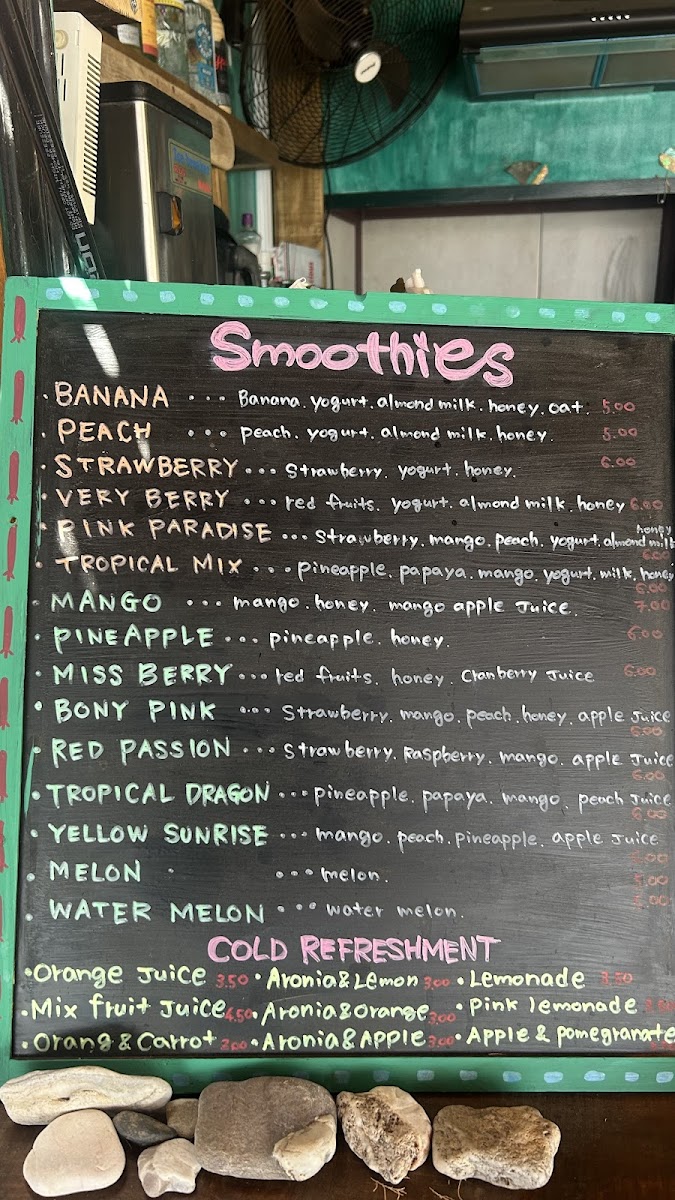 Smoothies
· BANANA ... Banana. yogurt. almond milk. honey. oat. 5.00
· PEACH ... peach. yogurt. almond milk. honey. 5.00
· STRAWBERRY ... Strawberry. yogurt. honey. 6.00
· VERY BERRY ... red fruits. yogurt. almond milk. honey 6.00
honey
· PINK PARADISE ... Strawberry. mango. peach. yogurt. almond milk
6.00
· TROPICAL MIX ... pineapple. papaya. mango. yogurt. milk. honey
6.00
· MANGO ... mango. honey. mango apple Juice. 7.00
· PINEAPPLE ... pineapple. honey. 6.00
· MISS BERRY ... red fruits. honey. Cranberry Juice 6.00
· BONY PINK ... Strawberry. mango. peach. honey. apple Juice
6.00
· RED PASSION ... Strawberry. Raspberry. mango. apple Juice
6.00
· TROPICAL DRAGON ... pineapple. papaya. mango. peach Juice
6.00
· YELLOW SUNRISE ... mango. peach. pineapple. apple Juice
· MELON ... melon. 5.00
· WATER MELON ... water melon.
COLD REFRESHMENT
· Orange Juice 3.50 · Aronia&Lemon 3.00 · Lemonade 3.50
· Mix fruit Juice 4.50 · Aronia&Orange 3.00 · Pink lemonade
· Orang & Carrot · Aronia&Apple 3.00 · Apple & pomegranate